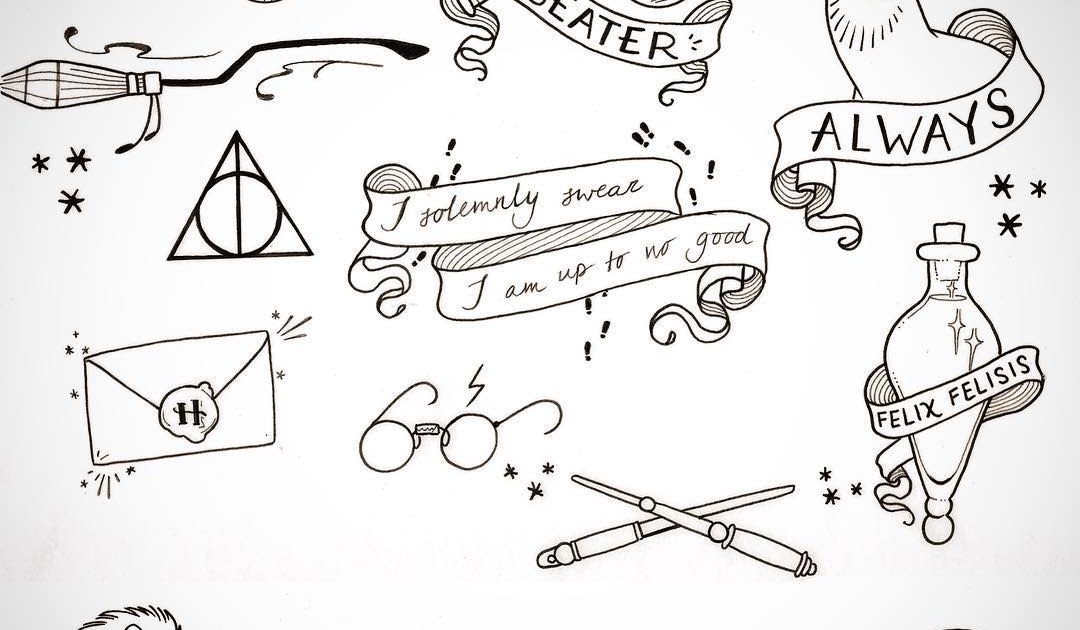 BEATER
ALWAYS
I solemnly swear
I am up to no good
H
FELIX FELISIS